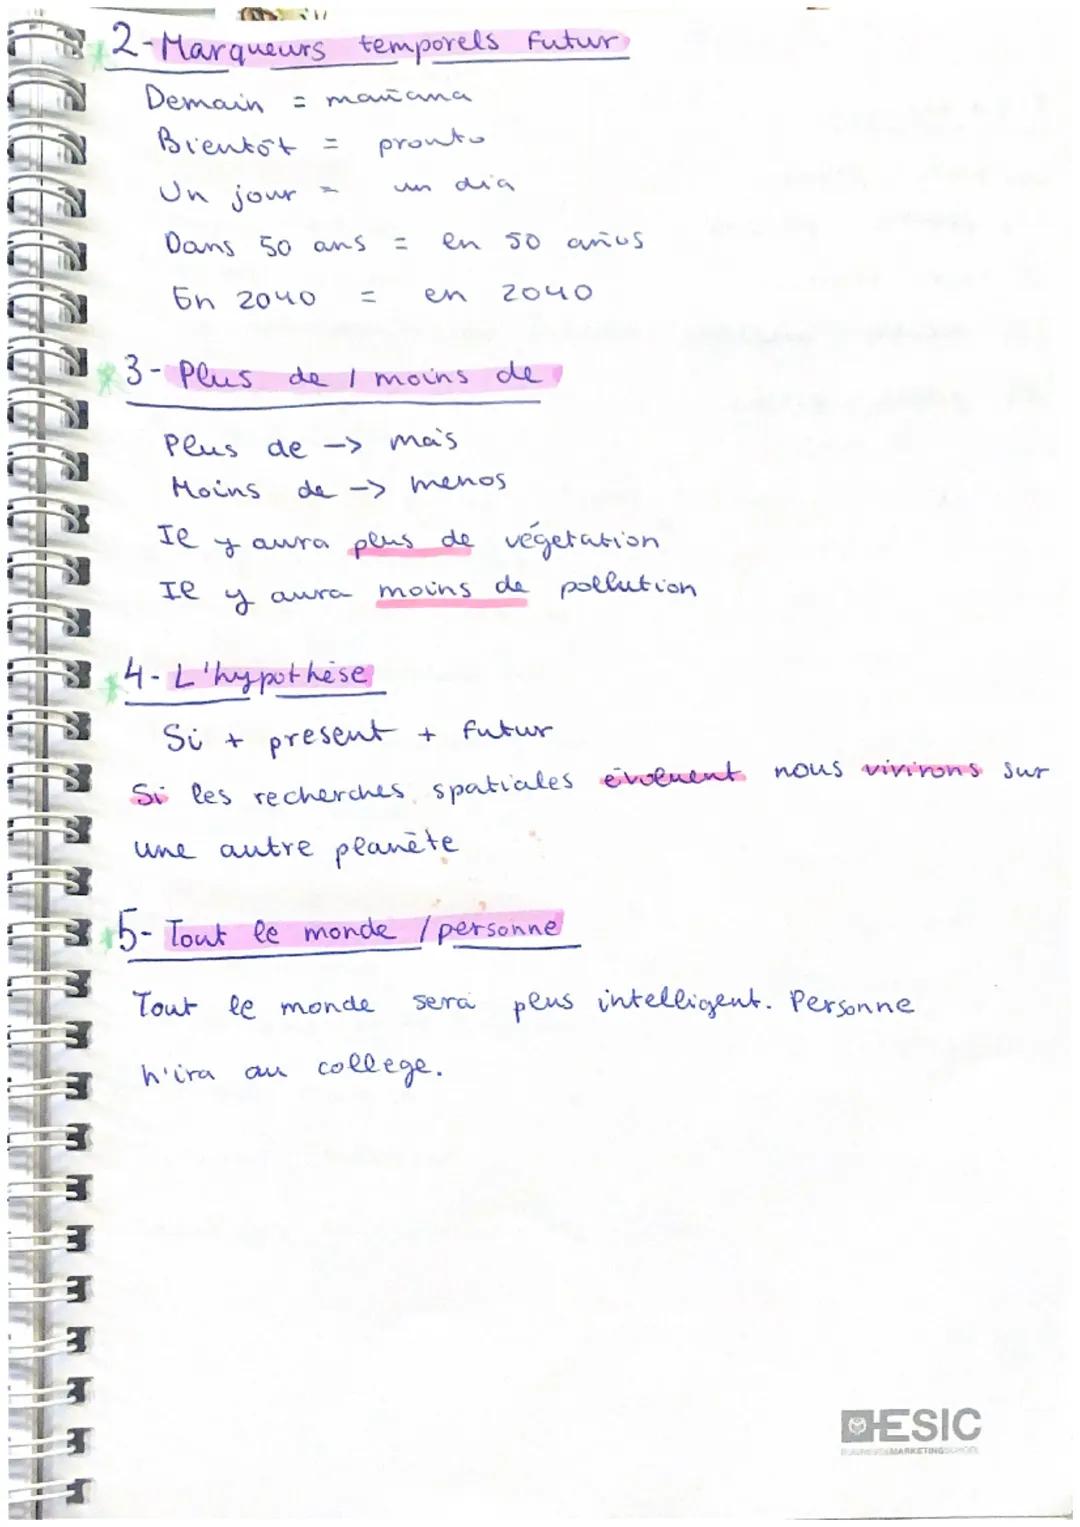 2-Marqueurs temporels futur
Demain = mañana
Bientôt = pronto
Un jour = un dia
Dans 50 ans = en 50 años
En 2040 = en 2040
3- Plus de / moins de
Plus de -> más
Moins de -> menos
Il y aura plus de végetation
Il y aura moins de pollution
4- L'hypothèse
Si + present + futur
Si les recherches spatiales évoluent nous vivirons sur
une autre planète
5- Tout le monde / personne
Tout le monde sera plus intelligent. Personne
n'ira au college.
ESIC
BUSINESS&MARKETINGSCHOOL